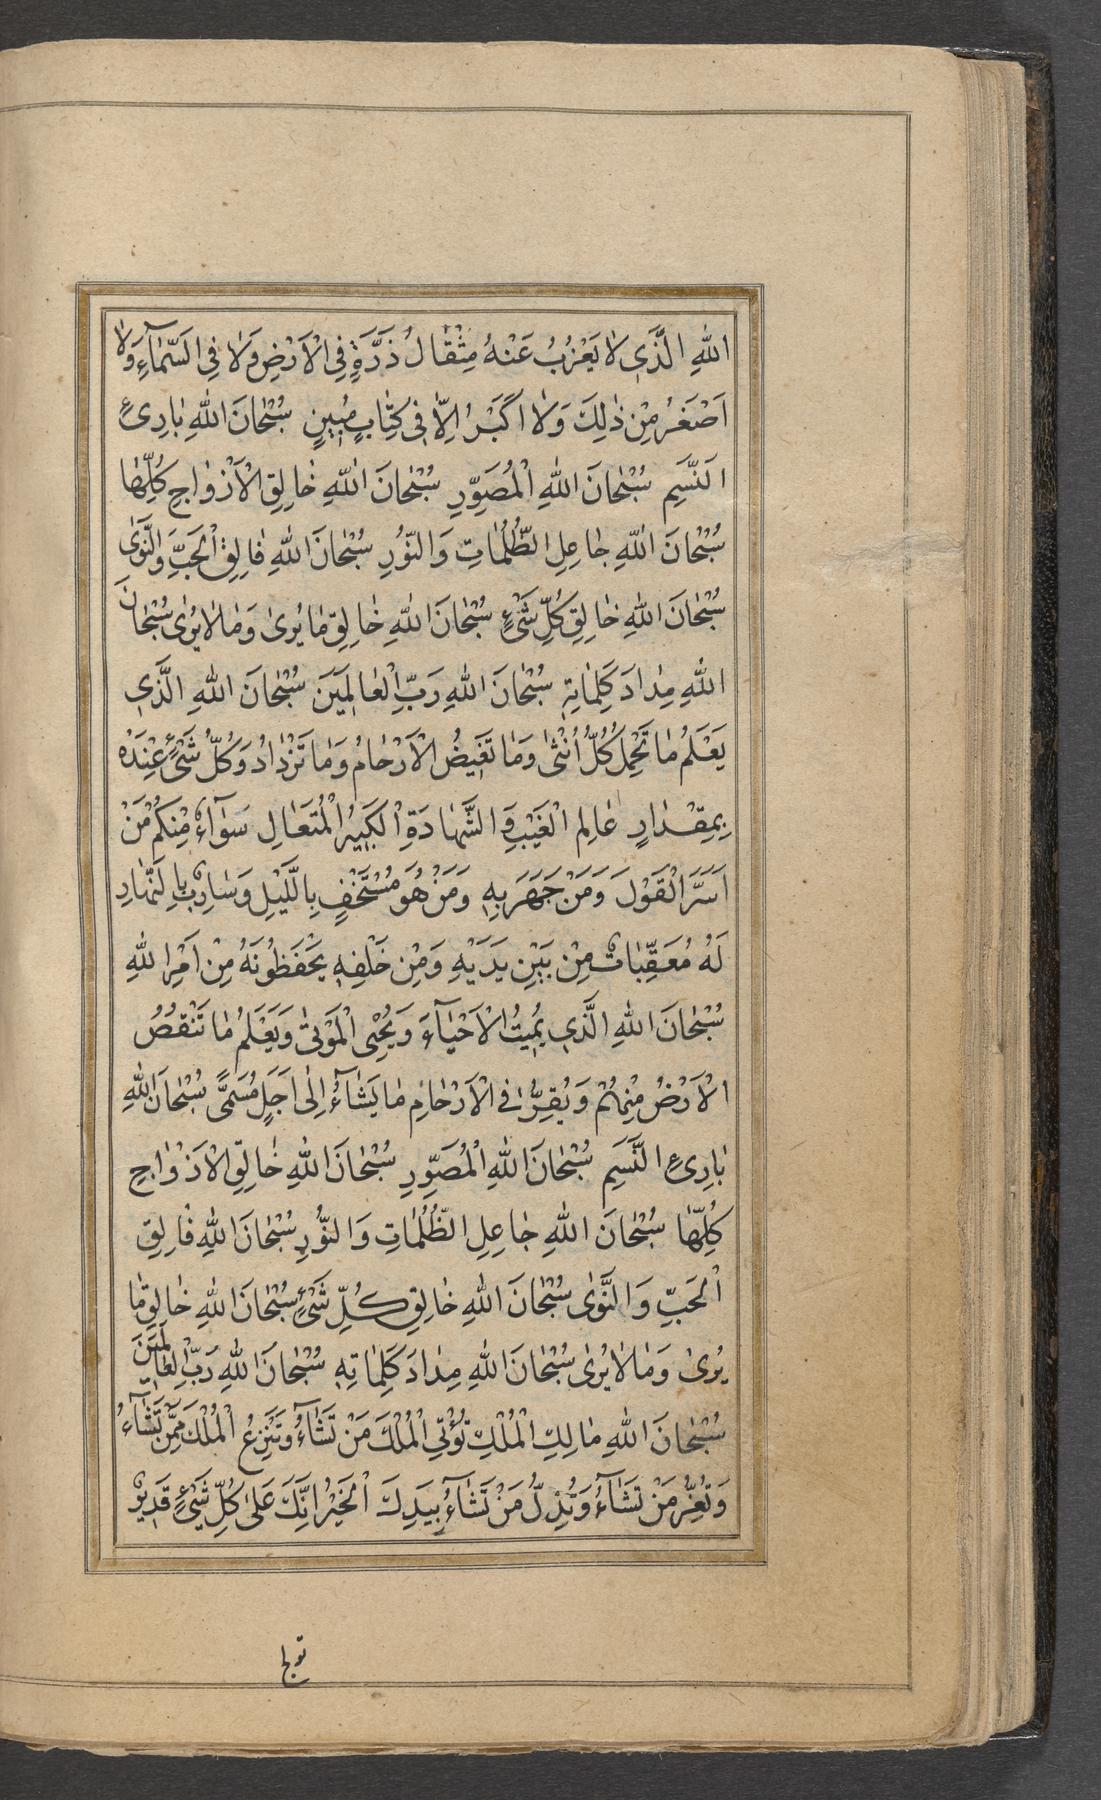 اللهِ الَّذي لا يَعْزُبُ عَنْهُ مِثْقالُ ذَرَّةٍ فِي الْاَرْضِ وَلا فِي السَّمآءِ وَلا
اَصْغَرُ مِنْ ذٰلِكَ وَلا اَكْبَرُ اِلّا في كِتابٍ مُبينٍ سُبْحانَ اللهِ بارِئِ
النَّسَمِ سُبْحانَ اللهِ الْمُصَوِّرِ سُبْحانَ اللهِ خالِقِ الْاَزْواجِ كُلِّها
سُبْحانَ اللهِ جاعِلِ الظُّلُماتِ وَالنُّورِ سُبْحانَ اللهِ فالِقِ الْحَبِّ وَالنَّوٰى
سُبْحانَ اللهِ خالِقِ كُلِّ شَيْءٍ سُبْحانَ اللهِ خالِقِ ما يُرىٰ وَما لا يُرىٰ سُبْحانَ
اللهِ مِدادَ كَلِماتِهِ سُبْحانَ اللهِ رَبِّ الْعالَمينَ سُبْحانَ اللهِ الَّذي
يَعْلَمُ ما تَحْمِلُ كُلُّ اُنْثىٰ وَما تَغيضُ الْاَرْحامُ وَما تَزْدادُ وَكُلُّ شَيْءٍ عِنْدَهُ
بِمِقْدارٍ عالِمِ الْغَيْبِ وَالشَّهادَةِ الْكَبيرُ الْمُتَعالِ سَوآءٌ مِنْكُمْ مَنْ
اَسَرَّ الْقَوْلَ وَمَنْ جَهَرَ بِهِ وَمَنْ هُوَ مُسْتَخْفٍ بِاللَّيْلِ وَسارِبٌ بِالنَّهارِ
لَهُ مُعَقِّباتٌ مِنْ بَيْنِ يَدَيْهِ وَمِنْ خَلْفِهِ يَحْفَظُونَهُ مِنْ اَمْرِ اللهِ
سُبْحانَ اللهِ الَّذي يُميتُ الْاَحْيآءَ وَيُحْيِي الْمَوْتىٰ وَيَعْلَمُ ما تَنْقُصُ
الْاَرْضُ مِنْهُمْ وَيُقِرُّ فِي الْاَرْحامِ ما يَشآءُ اِلىٰ اَجَلٍ مُسَمًّى سُبْحانَ اللهِ
بارِئِ النَّسَمِ سُبْحانَ اللهِ الْمُصَوِّرِ سُبْحانَ اللهِ خالِقِ الْاَزْواجِ
كُلِّها سُبْحانَ اللهِ جاعِلِ الظُّلُماتِ وَالنُّورِ سُبْحانَ اللهِ فالِقِ
الْحَبِّ وَالنَّوٰى سُبْحانَ اللهِ خالِقِ كُلِّ شَيْءٍ سُبْحانَ اللهِ خالِقِ ما
يُرىٰ وَما لا يُرىٰ سُبْحانَ اللهِ مِدادَ كَلِماتِهِ سُبْحانَ اللهِ رَبِّ الْعالَمينَ
سُبْحانَ اللهِ مالِكِ الْمُلْكِ تُؤْتِي الْمُلْكَ مَنْ تَشآءُ وَتَنْزِعُ الْمُلْكَ مِمَّنْ تَشآءُ
وَتُعِزُّ مَنْ تَشآءُ وَتُذِلُّ مَنْ تَشآءُ بِيَدِكَ الْخَيْرُ اِنَّكَ عَلىٰ كُلِّ شَيْءٍ قَديرٌ
تولج